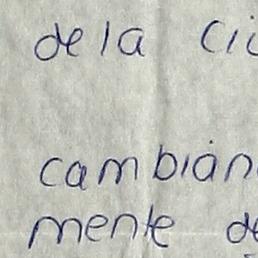 de la ci
cambian
mente de